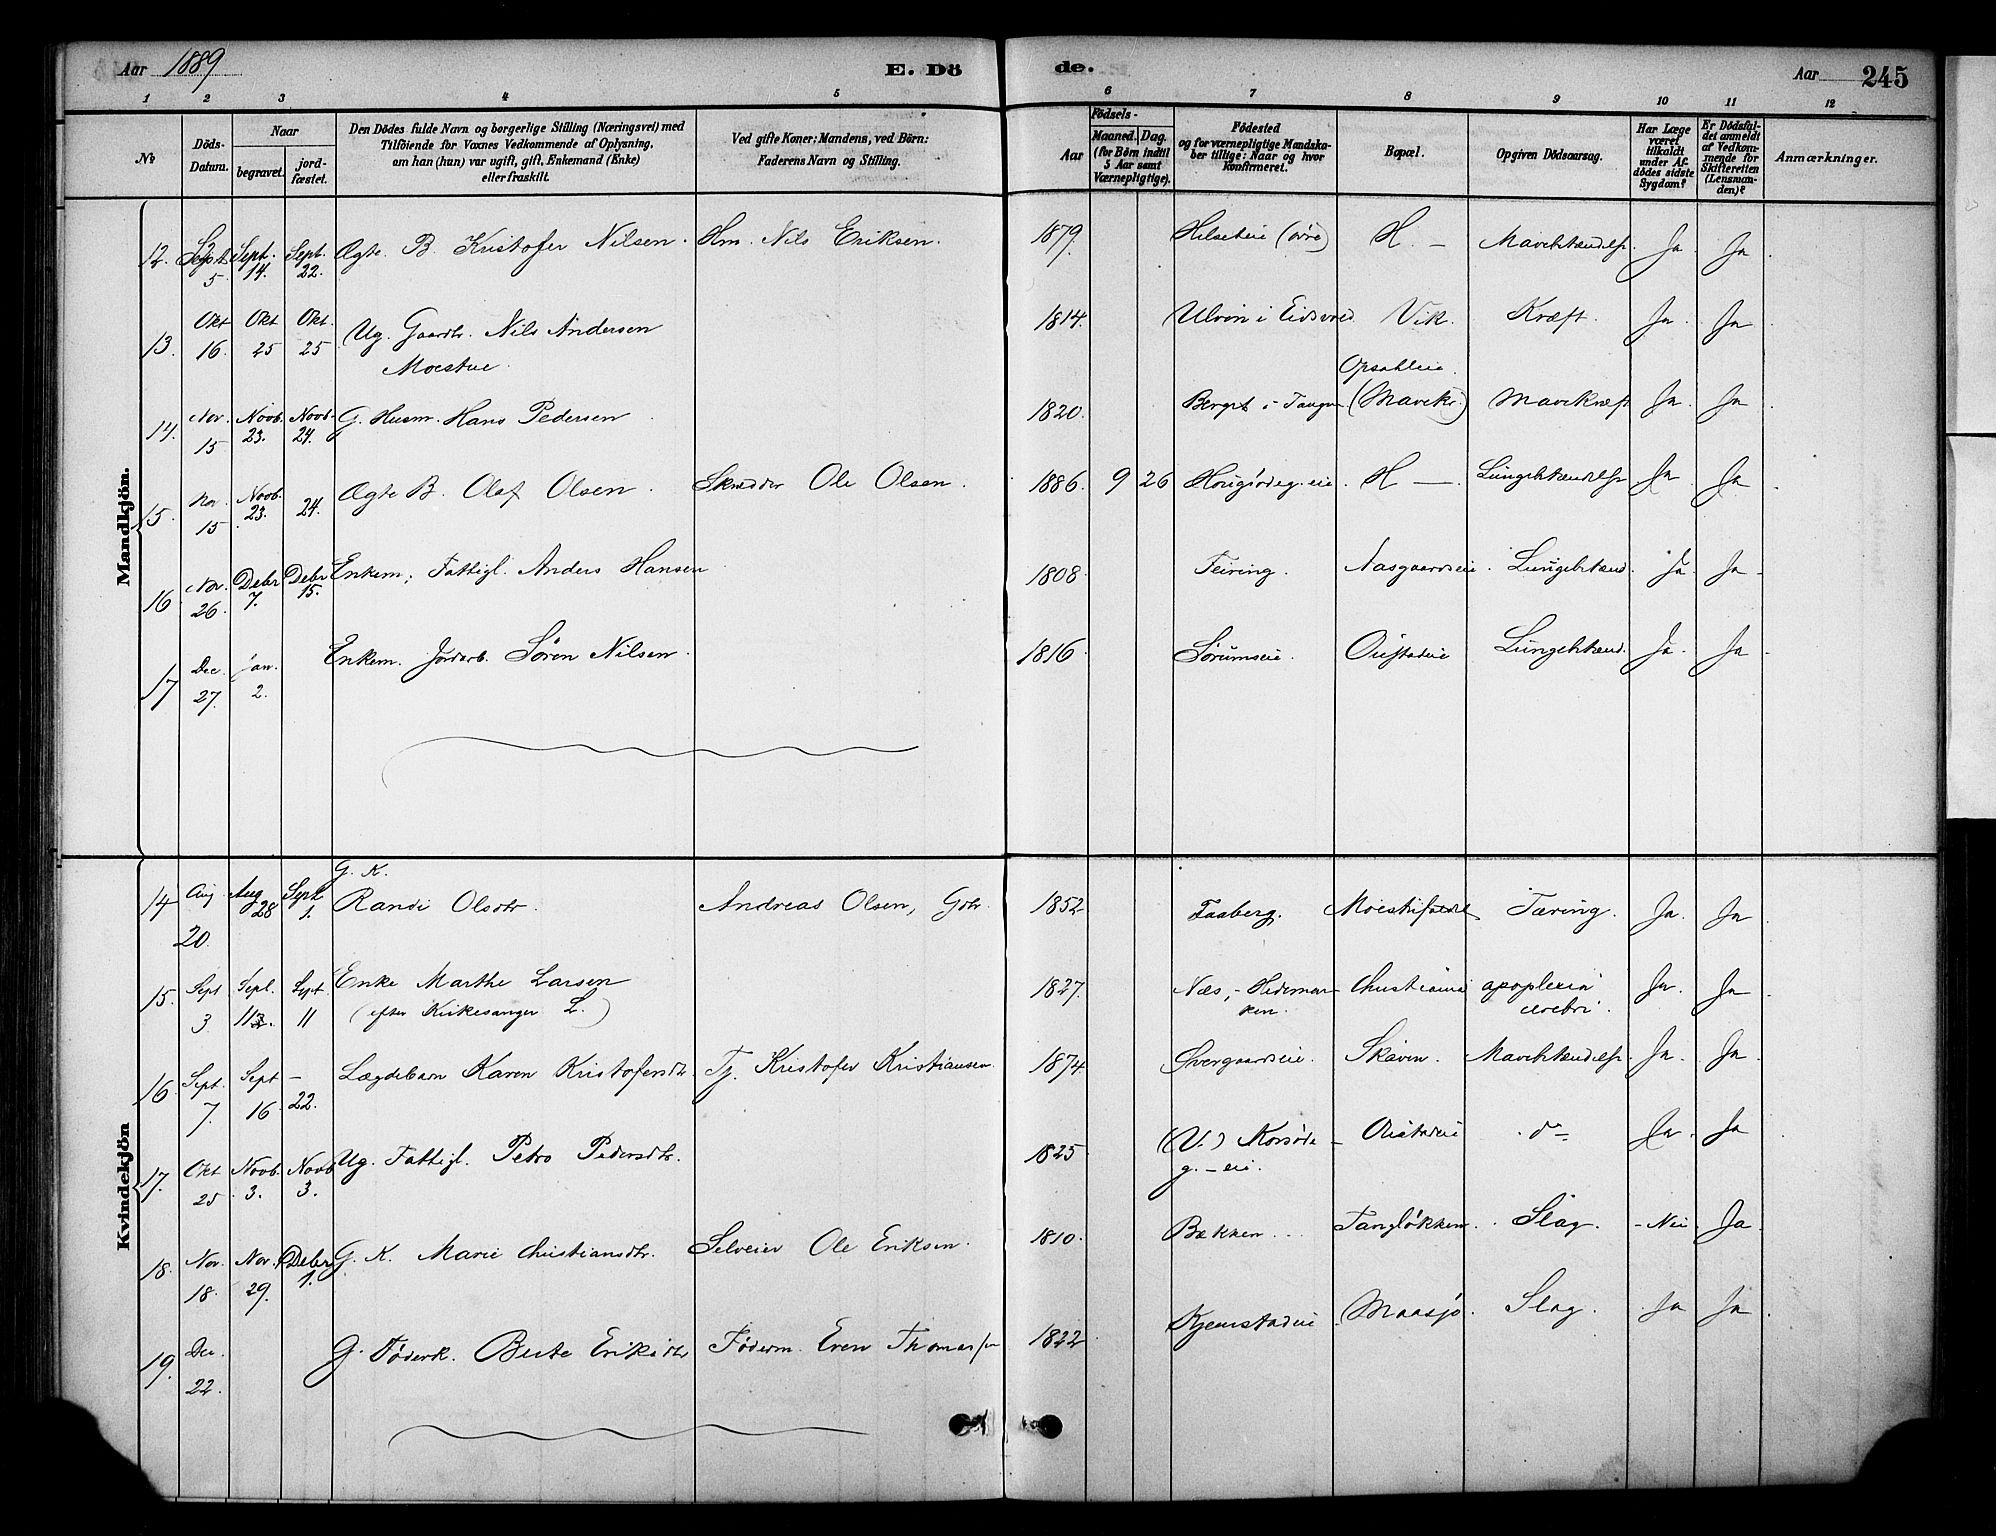 Aar 1889
E. Dö de.
Aar 245
1 2 3 4 5 6 7 8 9 10 11 12
No
Döds-Datum.
Naar begravet. jordfæstet.
Den Dödes fulde Navn og borgerlige Stilling (Næringsvei) med Tilföiende for Voxnes Vedkommende af Oplysning, om han (hun) var ugift, gift, Enkemand (Enke) eller fraskilt.
Ved gifte Koner: Mandens, ved Börn: Faderens Navn og Stilling.
Födsels-
Aar
Maaned. Dag. (for Börn indtil 5 Aar samt Værnepligtige).
Födested og for værnepligtige Mandskaber tillige: Naar og hvor konfirmeret.
Bopæl.
Opgiven Dödsaarsag.
Har Læge været tilkaldt under Afdödes sidste Sygdom?
Er Dödsfaldet anmeldt af Vedkommende for Skifteretten (Lensmanden)?
Anmærkninger.
Mandkjön.
12. Sept. 5 Sept. 14. Sept. 22. Ægte B. Kristofer Nilsen. Hm. Nils Eriksen. 1879. Hilseteie (øvre) H. — Mavebetændelse Ja Ja
13. Okt 16. Okt 25 Okt. 25 Ug. Gaardbr. Nils Andersen 1814. Ulven i Eidsvold Vik. Kræft. Ja Ja
Moestue.
14. Nov. 15 Novb. 23. Novb. 24. G. Husm. Hans Pedersen 1820. Berget i Tangen Opsahleie. (Mavekr.) Mavekræft Ja Ja
15. Nov. 15 Novb. 23. 24. Ægte B. Olaf Olsen. Skrædder Ole Olsen. 1886. 9 26 H — Lungebetændelse Ja Ja
16 Nov. 26. Debr 7. Debr 15. Enkem. Fattigl. Anders Hansen 1808. Feiring. Aasgaardseie Lungebetænd. Ja Ja
17 Dec 27. Jan. 2. Enkem. Jordarb. Søren Nilsen. 1816 Sørumseie. Lungebetænd. Ja Ja
Kvindekjön
G. K.
14 Aug 20. Aug 28 Sept 1. Randi Olsdtr. Andreas Olsen, Gbr. 1852 Faaberg. Tæring. Ja. Ja
15. Sept 3 Sept. 11 Sept. 11 Enke Marthe Larsen 1827. Næs, - Hedemarken. Christiania apoplexia cerebri. Ja. Ja
(efter Kirkesanger L.)
16 Sept. 7. Sept 16 — 22. Lægdebarn Karen Kristofersdtr. Tj. Kristofer Kristiansen. 1874. Skaven. Mavebetændelse Ja. Ja.
17. Okt 25 Novb. 3. Novb 3. Ug. Fattigl. Petro Pedersdtr. 1825 (V.) Korsøde g. - eie. do Ja Ja
18. Nov. 18. Nov. 29. Debr 1. G. K. Marie Christiansdtr. Selveier Ole Eriksen. 1810. Bækken Tangløkken. Slag. - Nei Ja.
19. Dec. 22. G. Føderk. Berte Eriksdtr Føderm. Even Thomassen 1822 Kjemstadeie Maasjø. Slag. Ja Ja